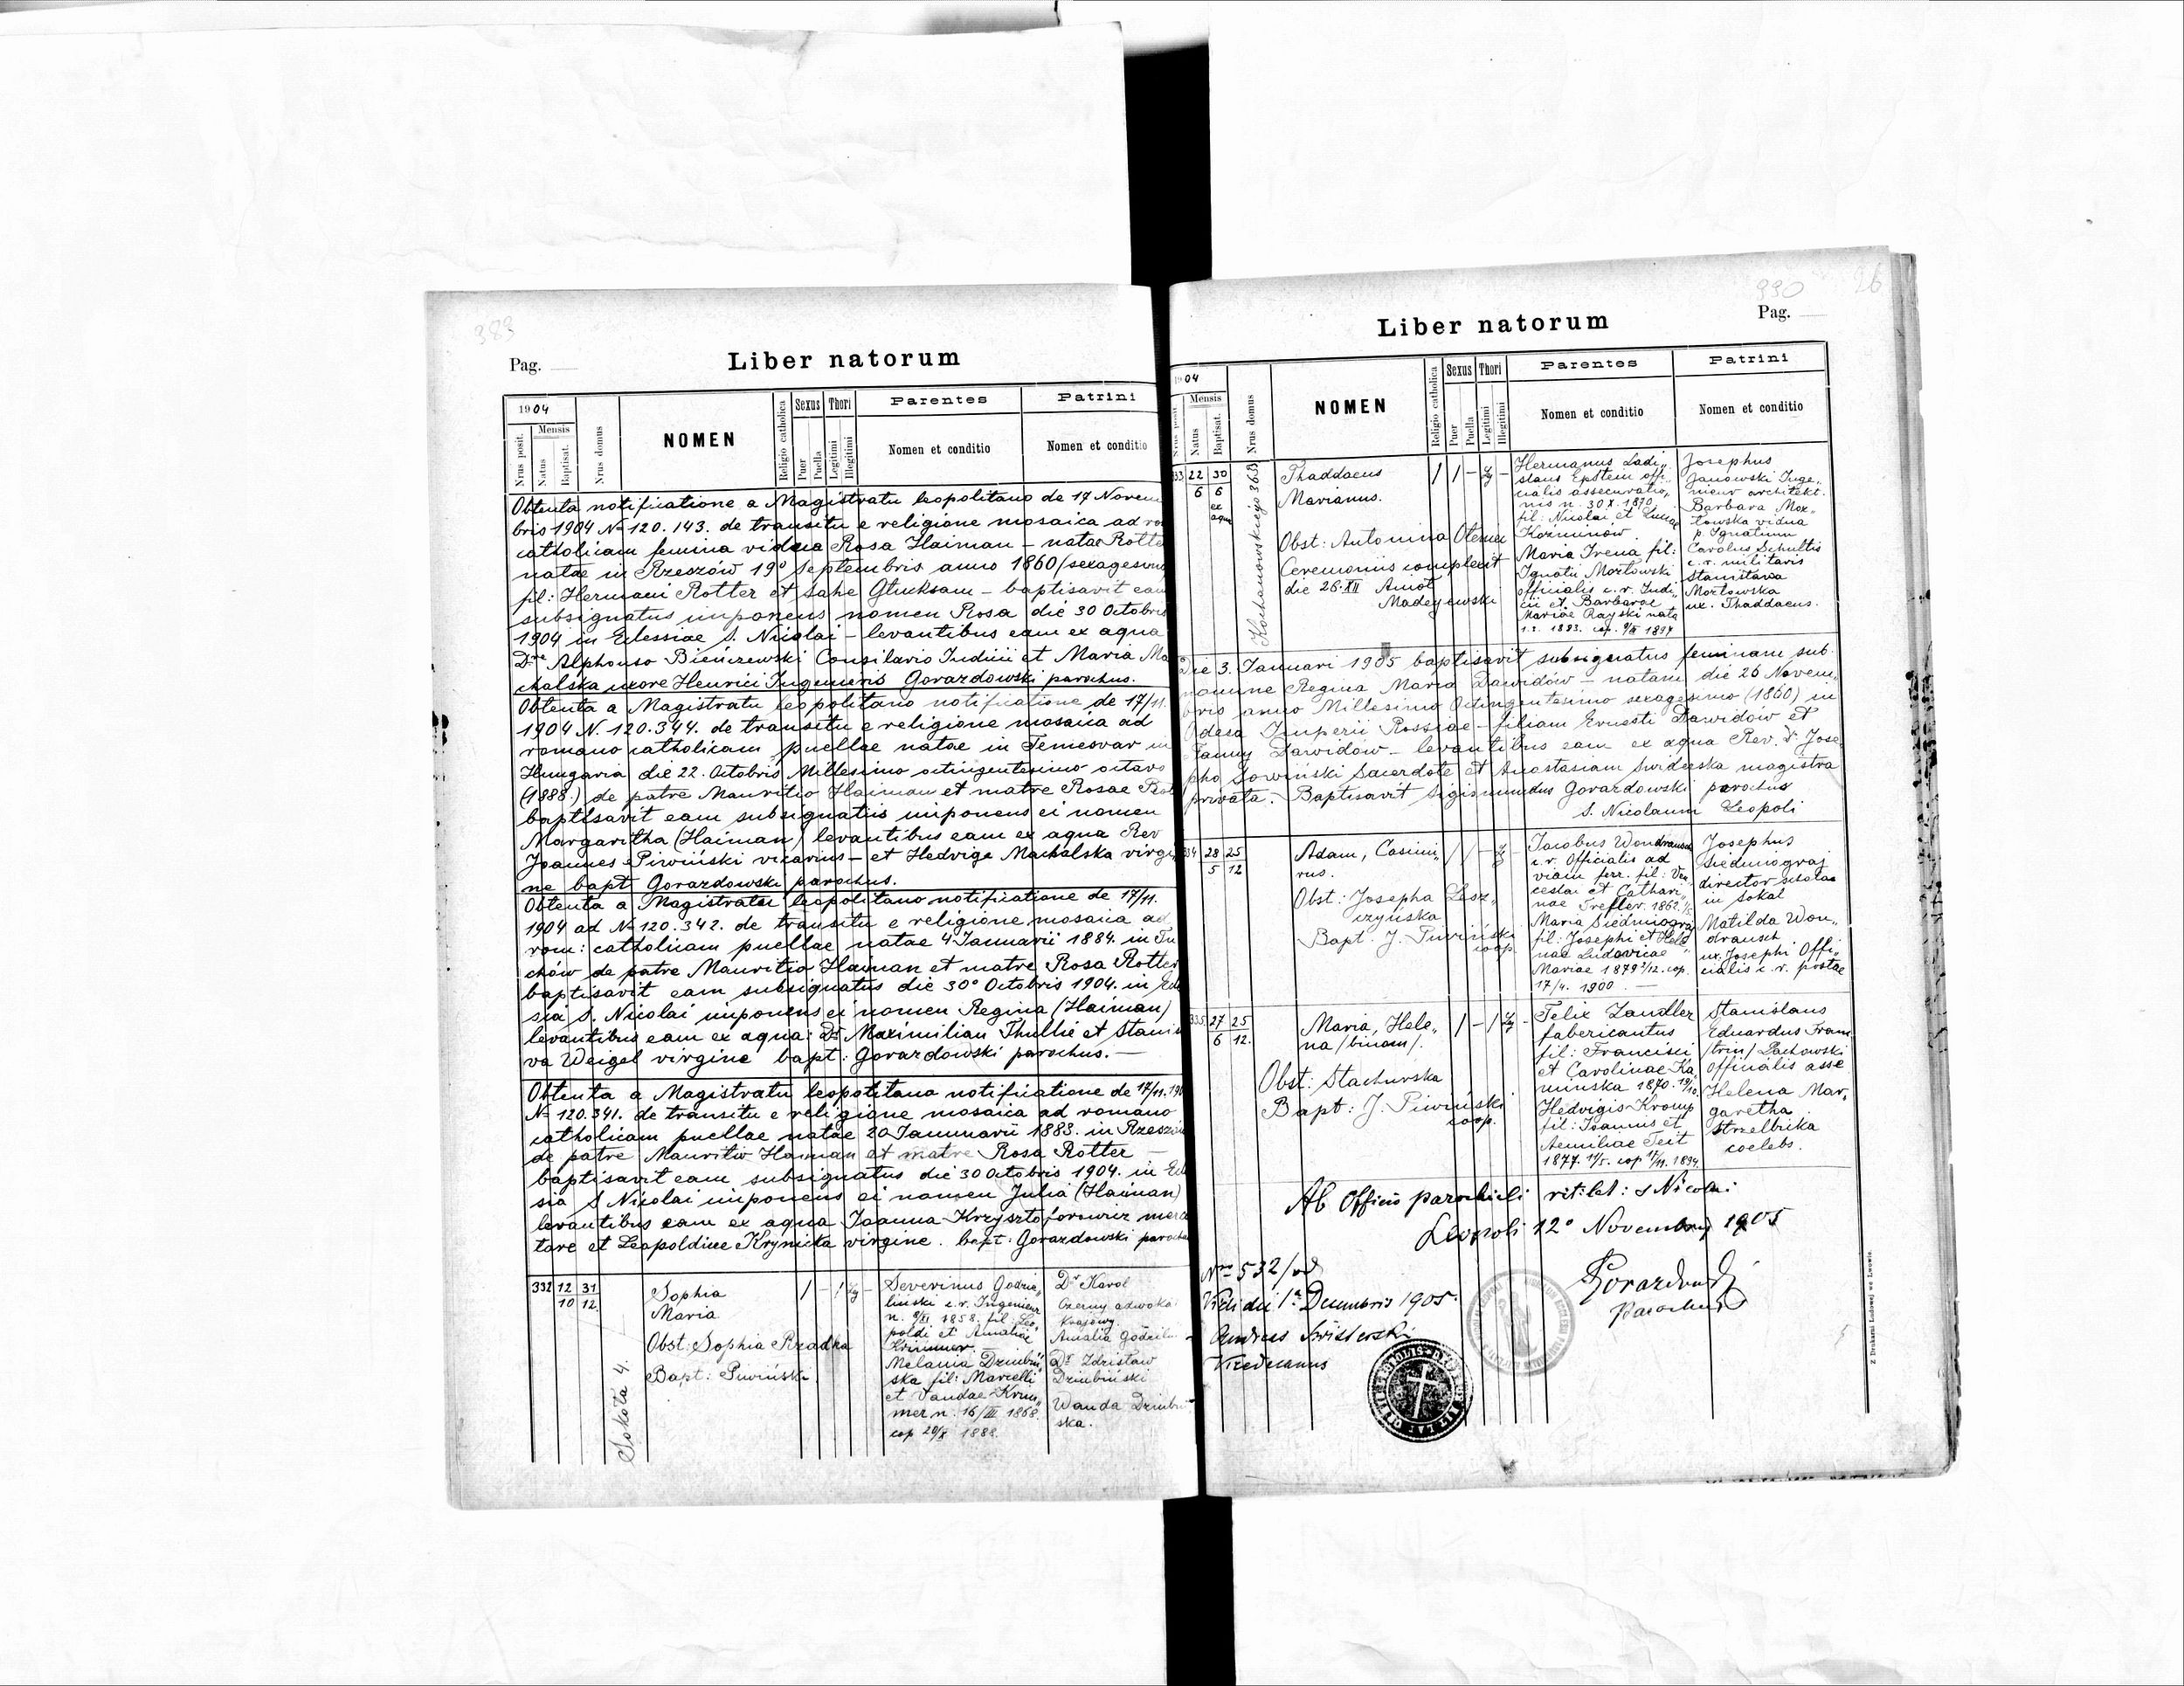 383
Pag.
Liber natorum
1904
Mensis
Nrus posit.
Natus
Baptisat.
Nrus domus
NOMEN
Religio catholica
Sexus
Puer
Puella
Thori
Legitimi
Illegitimi
Parentes
Nomen et conditio
Patrini
Nomen et conditio
Obtenta notificatione a Magistratu leopolitano de 17 Novem
bris 1904 N 120.143. de transitu e religione mosaica ad ro
catholicam femina vidua Rosa Haiman – natae Rotte
natae in Rzeszów 19º Septembris anno 1860 (sexagesimo
fil: Hermani Rotter et Sahe Glucksam – baptisavit eam
subsignatus imponens nomen Rosa die 30 Octobris
1904 in Eclessiae S. Nicolai – levantibus eam ex aqua
Dre Alphonso Bieńczewski Consilario Judicii et Maria Ma
chalska uxore Henrici Ingenieris Gorazdowski parochus.
Obtenta a Magistratu leopolitano notificatione de 17/11.
1904 N. 120.344. de transitu e religione mosaica ad
romano catholicam puellae natae in Temesvar in
Hungaria die 22. Octobris Millesimo octingentesimo octavo
(1888.) de patre Mauritio Haiman et matre Rosae Rot
baptisavit eam subsignatus imponens ei nomen
Margaritha (Haiman) levantibus eam ex aqua Rev
Joannes Piwiński vicarius – et Hedvige Machalska virgi
ne bapt Gorazdowski parochus.
Obtenta a Magistratu leopolitano notificatione de 17/11.
1904 ad N 120.342. de transitu e religione mosaica ad
rom: catholicam puellae natae 4 Januarii 1884. in Tu
chów de patre Mauritio Haiman et matre Rosa Rotter
baptisavit eam subsignatus die 30º Octobris 1904. in Ecle
sia S. Nicolai imponens ei nomen Regina (Haiman)
levantibus eam ex aqua: Dr Maximilian Thullie et Stanis
va Weigel virgine bapt: Gorazdowski parochus. —
Obtenta a Magistratu leopolitana notificatione de 17/11. 190
N 120.341. de transitu e religione mosaica ad romano
catholicam puellae natae 20 Januuarii 1883. in Rzeszów
de patre Mauritio Haiman et matre Rosa Rotter –
baptisavit eam subsignatus die 30 Octobris 1904. in Ecl
sia S Nicolai imponens ei nomen Julia (Haiman)
levantibus eam ex aqua Joanna Krzysztoforowicz merca
tore et Leopoldine Krynicka virgine. bapt: Gorazdowski parochu
332 12 31
10 12.
Sokoła 4.
Sophia
Maria
Obst: Sophia Rzadka
Bapt: Piwiński
1 – 1 –
Severinus Godzie
liński c.r. Ingenieur
n. 8/XI 1858. fil: Leo
poldi et Amaliae
Krimmer
Melania Dziubiń
ska fil: Marcelli
et Vandae Krim
mer n. 16/III 1868.
cop 20/X 1888.
Dr Karol
Czerny adwoka
Krajowy.
Amalia
Dr Zdzisław
Dziubiński
Wanda Dziubi
ska.
990 26
Pag.
Liber natorum
1904
Mensis
Natus
Baptisat.
Nrus domus
NOMEN
Religio catholica
Sexus
Puer
Puella
Thori
Legitimi
Illegitimi
Parentes
Nomen et conditio
Patrini
Nomen et conditio
33 22 30
6 6
ex
aqua
Kochanowskiego 363
Thaddaeus
Marianus.
Obst: Antonina
Ceremoniis complevit
die 26.XII
Madeyewski
1 1 – –
Hermanus Ladi,,
slaus Epstein offi,,
cialis assecuratio,,
nis n. 30 X. 1870.
fil: Nicolai et Luciae
Kozminów.
Maria Irena fil:
Ignatii Mozłowski
officialis c.r. Judi,,
cii et Barbarae
Mariae Rayski nata
1883. cop. 1894
Josephus
Janowski Inge,,
nieur architekt.
Barbara Moz,,
łowska vidua
p. Ignatium
Carolus Schultis
c.r. militaris
Stanisława
Mozłowska
ux. Thaddaeus.
Die 3. Januari 1905 baptisavit subsignatus feminam sub.
nomine Regina Maria Dawidów – natam die 26 Novem,,
bris anno Millesimo octingentesimo sexagesimo (1860) in
Odesa Imperii Rossiae – filiam Ernesti Dawidów et
Fanny Dawidów – levantibus eam ex aqua Rev. Dr Jose,
pho Sowiński Sacerdote et Anastasiam Swiderska magistra
privata. Baptisavit Sigismundus Gorazdowski parochus
S. Nicolaum Leopoli
334 28 25
5 12
Adam, Casimi,,
rus.
Obst: Josepha Lesz,,
czyńska
Bapt. J. Piwiński
coop.
1 1 – –
Jacobus Wondrausch
c.r. Officialis ad
viam ferr. fil: Ven
ceslai et Cathari,,
nae Trefler. 1862.
Maria Siedmiograj
fil: Josephi et Hele
nae Ludovicae
Mariae 1879 2/12. cop.
17/4. 1900. —
Josephus
Siedmiograj
director scholae
in Sokal
Matilda Won,,
drausch
ux. Josephi Offi,,
cialis c.r. postae
335 27 25
6 12.
Maria, Hele,,
na /binom/.
Obst: Stachurska
Bapt: J. Piwiński
coop.
1 – 1 –
Felix Zandler
fabericantus
fil: Francisci
et Carolinae Ka
minska 1870.
Hedvigis Kromp
fil: Joannis et
Aemiliae Teit
1877. cop 17/11. 1894.
Stanislaus
Eduardus Fran
/trin/ Lachowski
officialis asse
Helena Mar,
garetha
Strzelbicka
coelebs.
Ab Officio parochiali rit: lat: S Nicolai
Leopoli 12º Novembris 1905
Gorazdowski
Parochus
Nro 532/
Vidi die 1a Decembris 1905.
Andreas
Vicedecanus
Z Drukarni Ludowej we Lwowie.